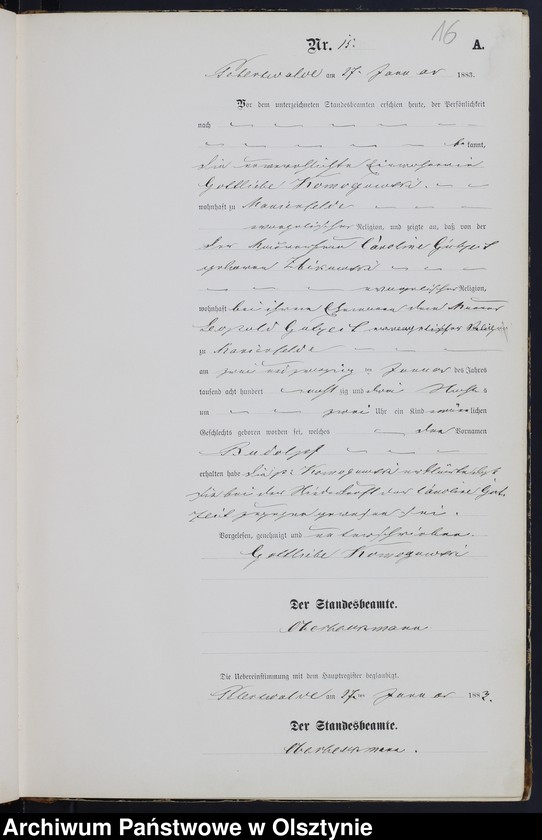 16
Nr. 15. A.
am 27. Januar 1883.
Vor dem unterzeichneten Standesbeamten erschien heute, der Persönlichkeit
nach
kannt,
die unverehelichte Einwohnerin
Gottliebe Komogowski
wohnhaft zu Marienfelde
evangelischer Religion, und zeigte an, daß von der
der Caroline Gutzeit
geborene
evangelischer Religion,
wohnhaft bei ihrem Ehemann dem
Leopold Gutzeit evangelischer Religion
zu Marienfelde
am zwei und zwanzig ten Januar des Jahres
tausend acht hundert acht zig und drei Nachts
um zwei Uhr ein Kind männlichen
Geschlechts geboren worden sei, welches den Vornamen
Rudolph
erhalten habe die p. Komogowski erklärte daß
sie bei der Niederkunft der Caroline Gut-
zeit zugegen gewesen sei.
Vorgelesen, genehmigt und unterschrieben.
Gottliebe Komogowski
Der Standesbeamte.
Die Uebereinstimmung mit dem Hauptregister beglaubigt.
am 27ten Januar 1883.
Der Standesbeamte.
Archiwum Państwowe w Olsztynie